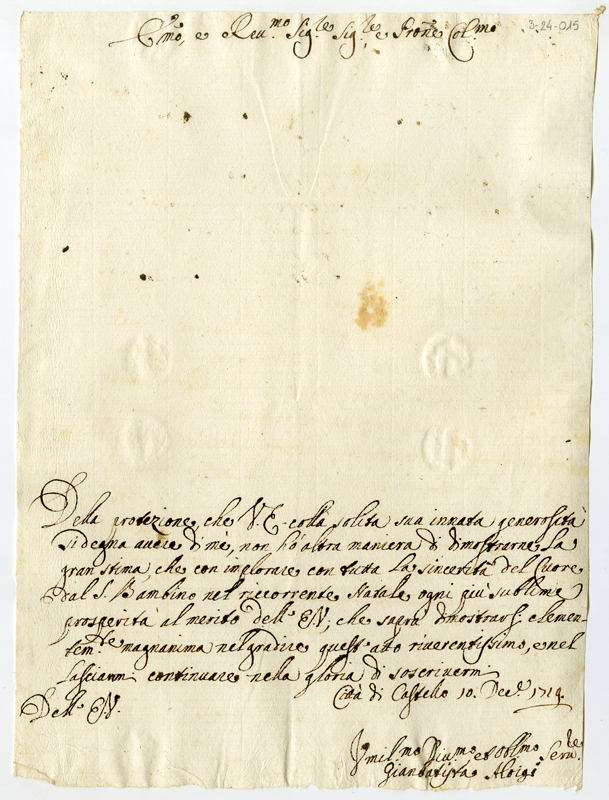 3-24-015
Emo, e Reu.mo Sig.re Sig.re, e Prone Col.mo
Della protezione, che V.E. colla solita sua innata generosità
si degna avere di mè, non hò altra maniera di dmostrarne la
gran stima, che con implorare con tutta la sincerità del Cuore
dal S. Bambino nel ricorrente Natale ogni più sublime
prosperità al merito dell' EV; che saprà dmostrarsi clemen-
tem.te magnanima nel gradire quest' atto riverentissimo, e nel
lasciarmi continuare nella gloria di soscrivermi
Città di Castello 10. Dec.e 1719.
Dell' EV.
Vmilmo Diu.mo et Obl.mo Seru.re
Gianbatista Aloigi